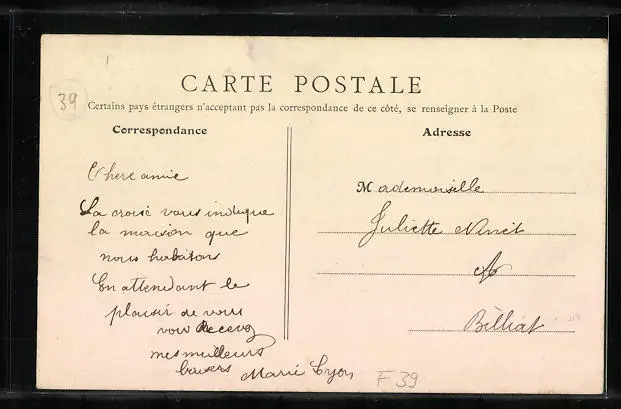 39
CARTE POSTALE
Certains pays étrangers n'acceptant pas la correspondance de ce côté, se renseigner à la Poste
Correspondance
Adresse
Chere amie
La croix vous indique
la maison que
nous habitons
En attendant le
plaisir de vous
voir Recevez
mes meilleurs
baisers Marie Lyon
Mademoiselle
Juliette
A
Billiat
F 39